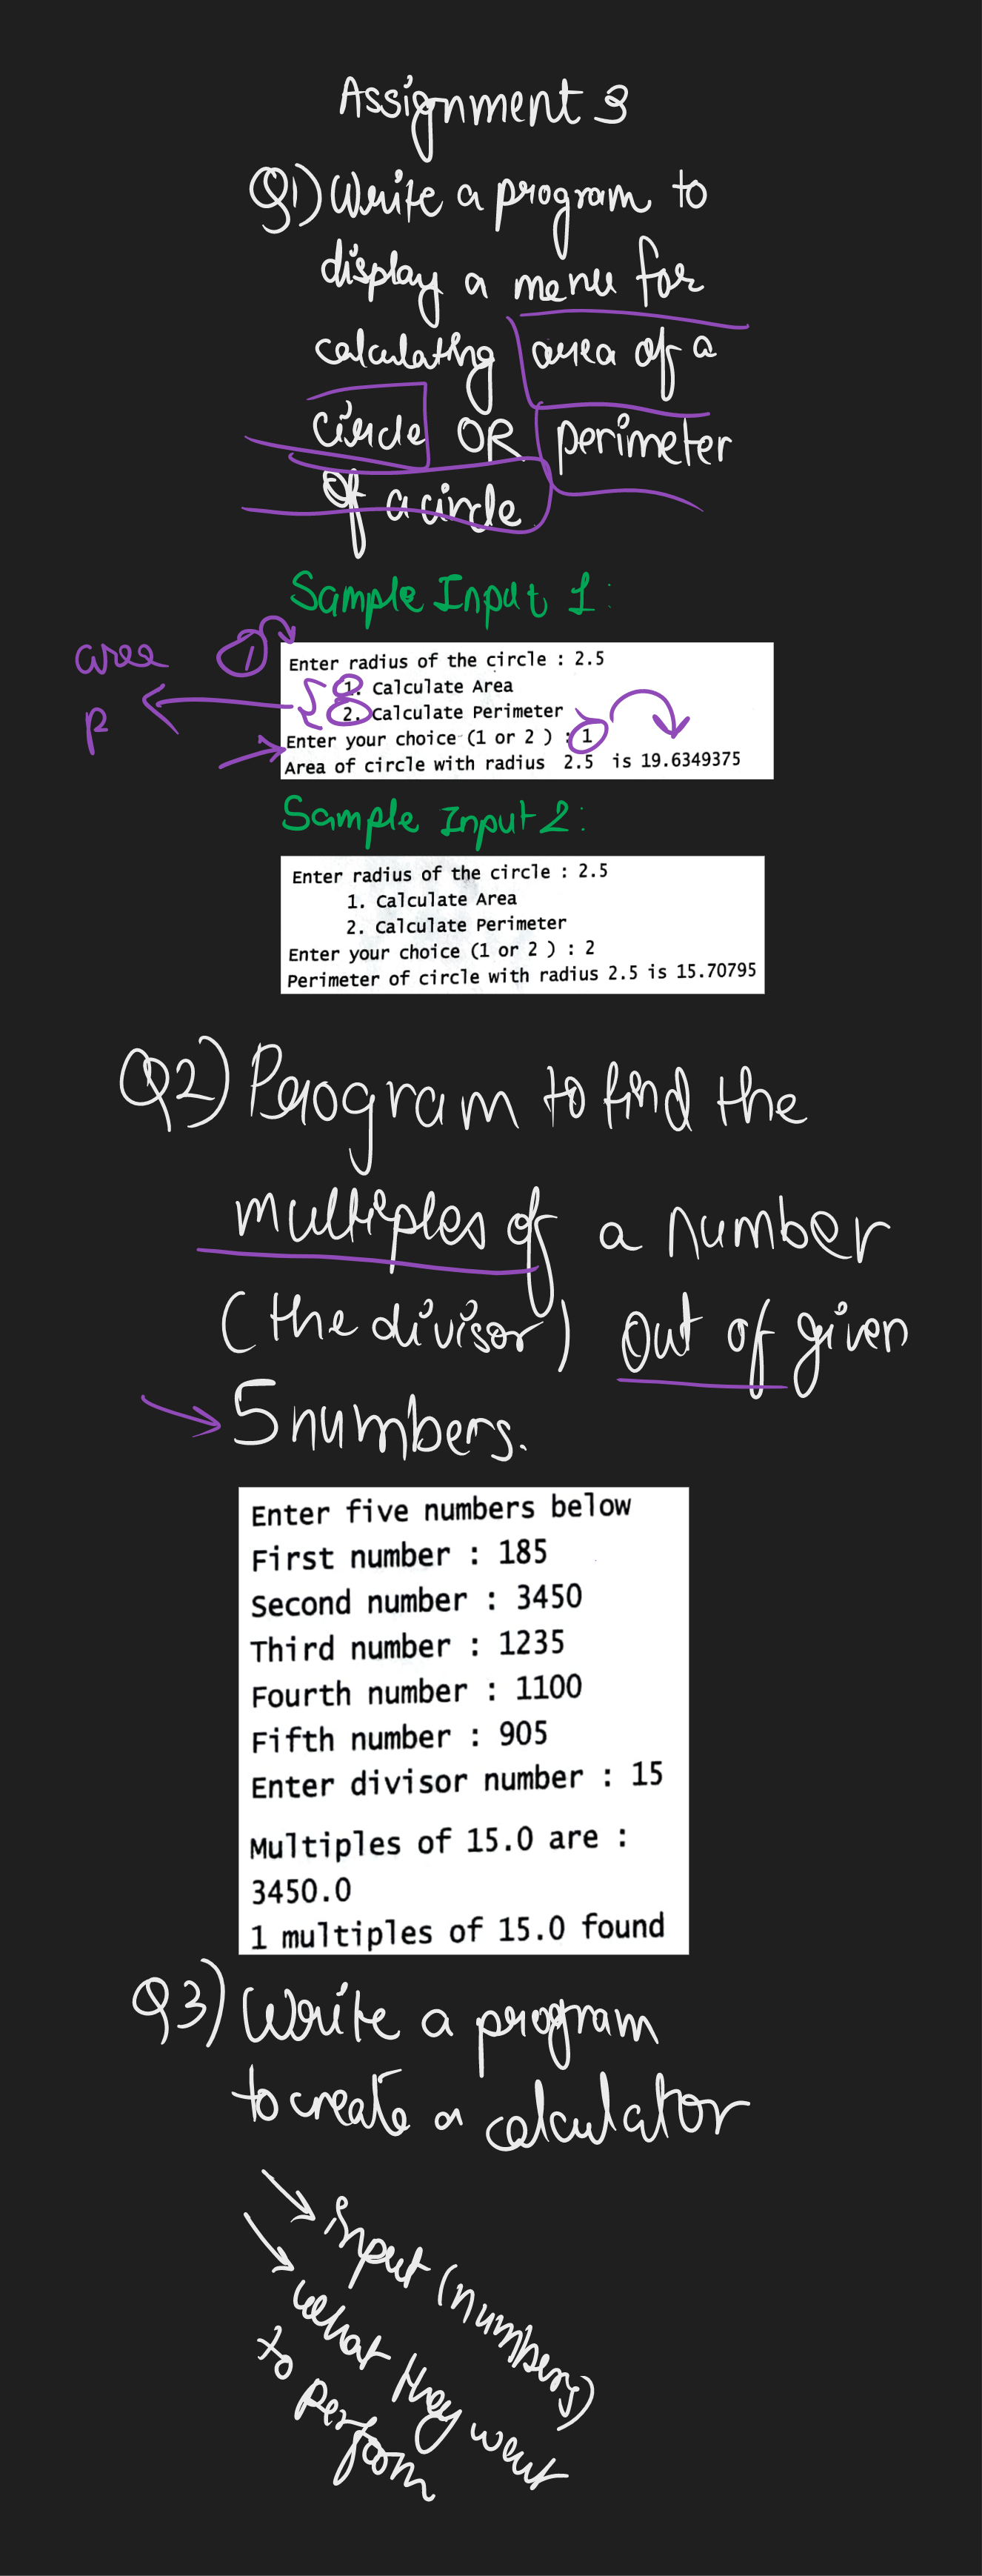 Assignment 3
Q1) Write a program to
display a menu for
calculating area of a
circle OR perimeter
Of a circle
Sample Input 1:
area 1
P
Enter radius of the circle : 2.5
1. Calculate Area
2. Calculate Perimeter
Enter your choice (1 or 2 ) : 1
Area of circle with radius 2.5 is 19.6349375
Sample Input 2:
Enter radius of the circle : 2.5
1. Calculate Area
2. Calculate Perimeter
Enter your choice (1 or 2 ) : 2
Perimeter of circle with radius 2.5 is 15.70795
Q2) Program to find the
multiples of a number
(the divisor) out of given
5 numbers.
Enter five numbers below
First number : 185
Second number : 3450
Third number : 1235
Fourth number : 1100
Fifth number : 905
Enter divisor number : 15
Multiples of 15.0 are :
3450.0
1 multiples of 15.0 found
Q3) Write a program
to create a calculator
input (numbers)
what they want
to perform